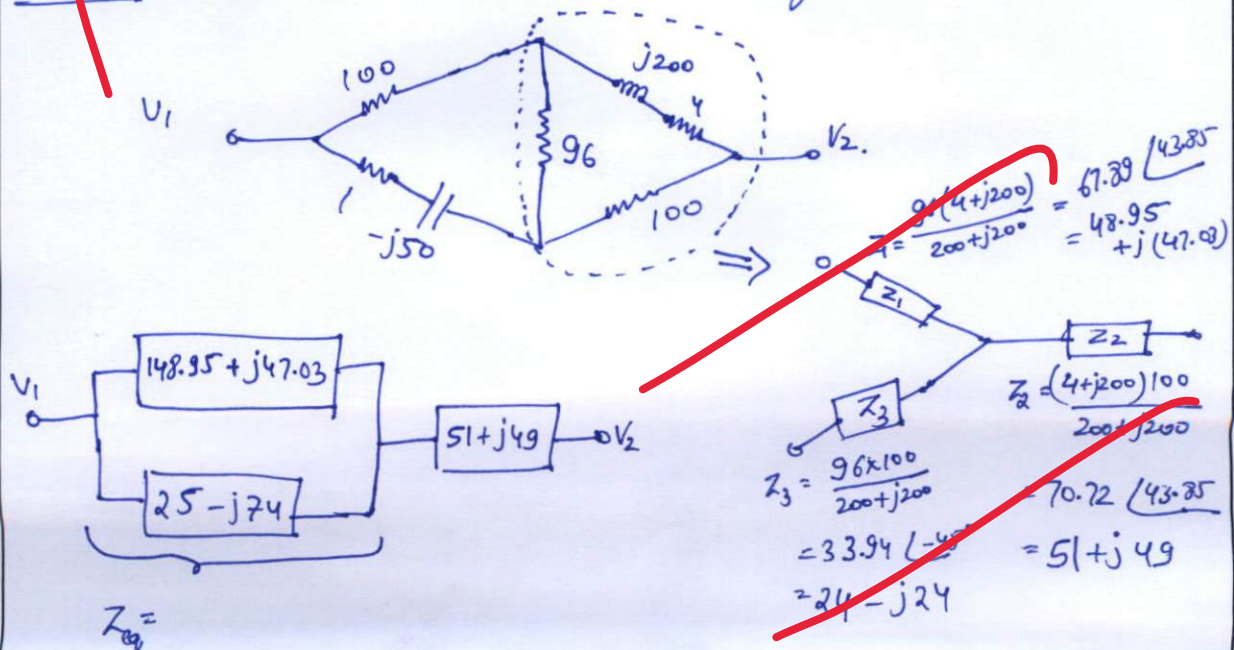 V1
100
1
-j50
96
j200
4
100
V2.
(4+j200)
200+j200
= 67.89 ∠43.85
= 48.95
+j(47.03)
⇒
Z1
Z2
Z3
Z2 = (4+j200)100
200+j200
= 70.72 ∠43.85
= 51+j49
Z3 = 96×100
200+j200
= 33.94 ∠-45
= 24-j24
V1
148.95+j47.03
25-j74
51+j49
V2
Zeq =